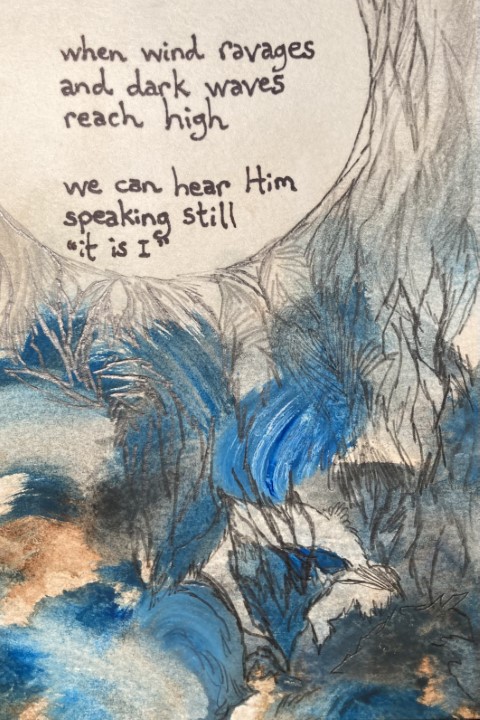 when wind ravages
and dark waves
reach high
we can hear Him
speaking still
"it is I"